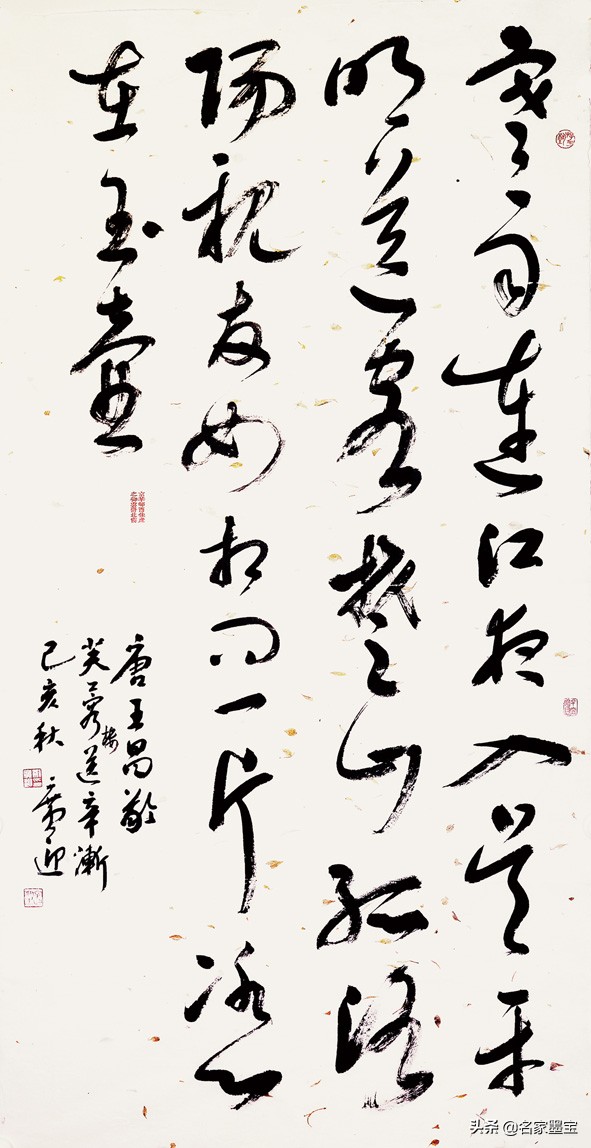 寒雨連江夜入吳平
明送客楚山孤洛
陽親友如相問一片冰心
在玉壺
唐王昌齡
芙蓉楼送辛漸
己亥秋
头条 @名家墨宝